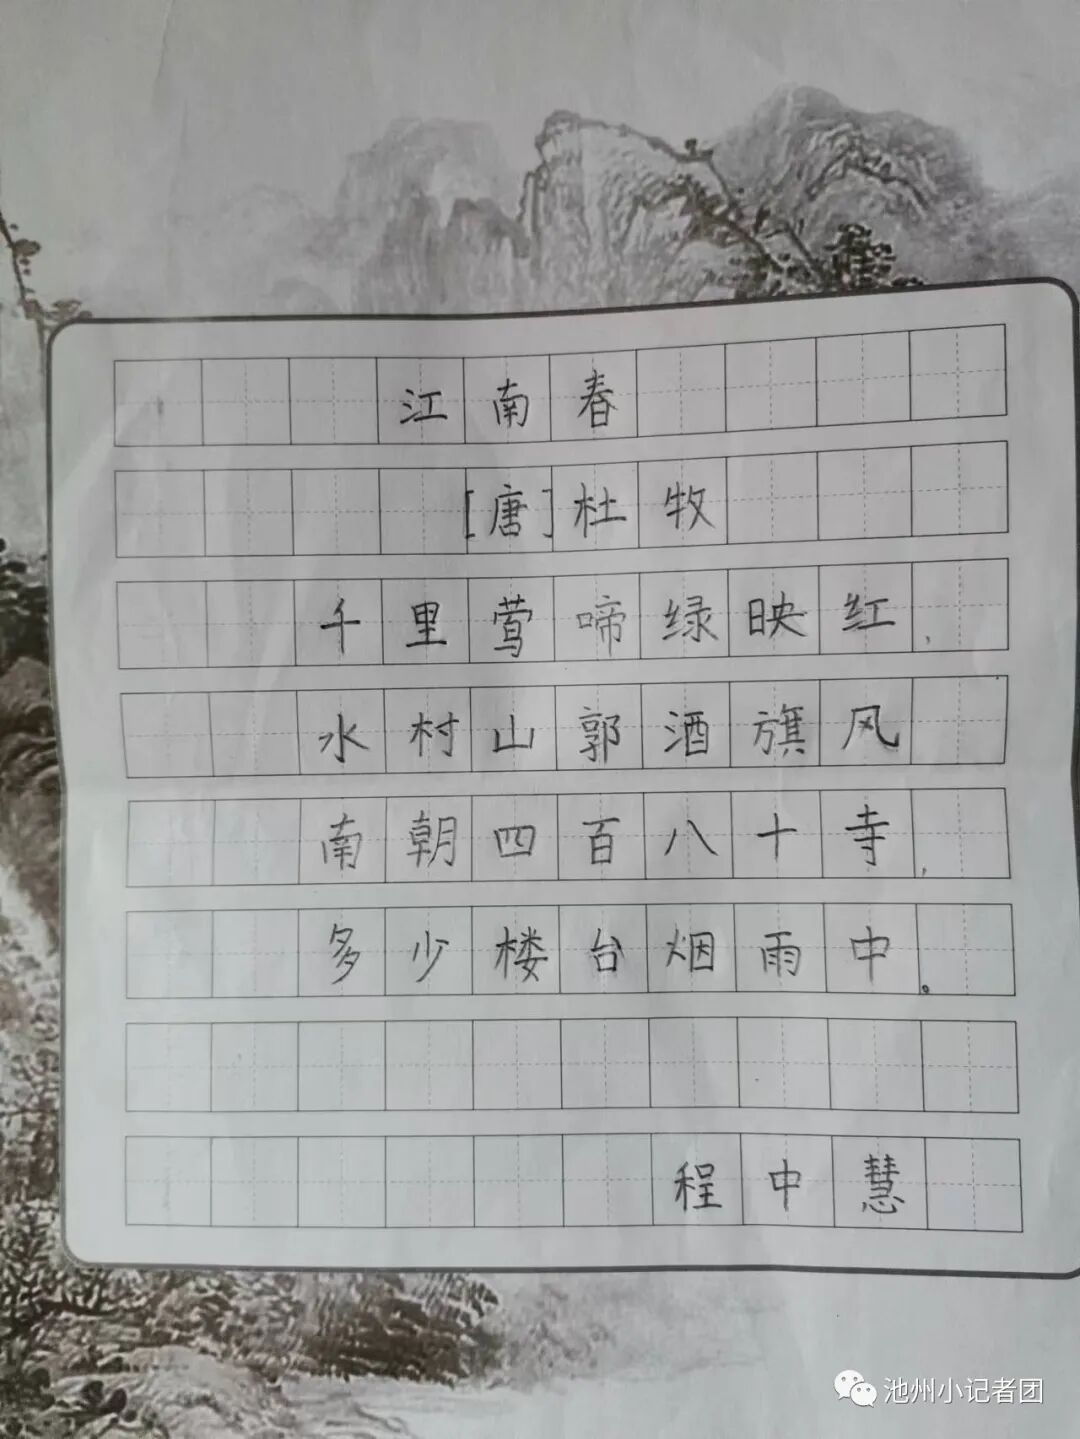 江南春
[唐]杜牧
千里莺啼绿映红,
水村山郭酒旗风
南朝四百八十寺,
多少楼台烟雨中。
程中慧
池州小记者团